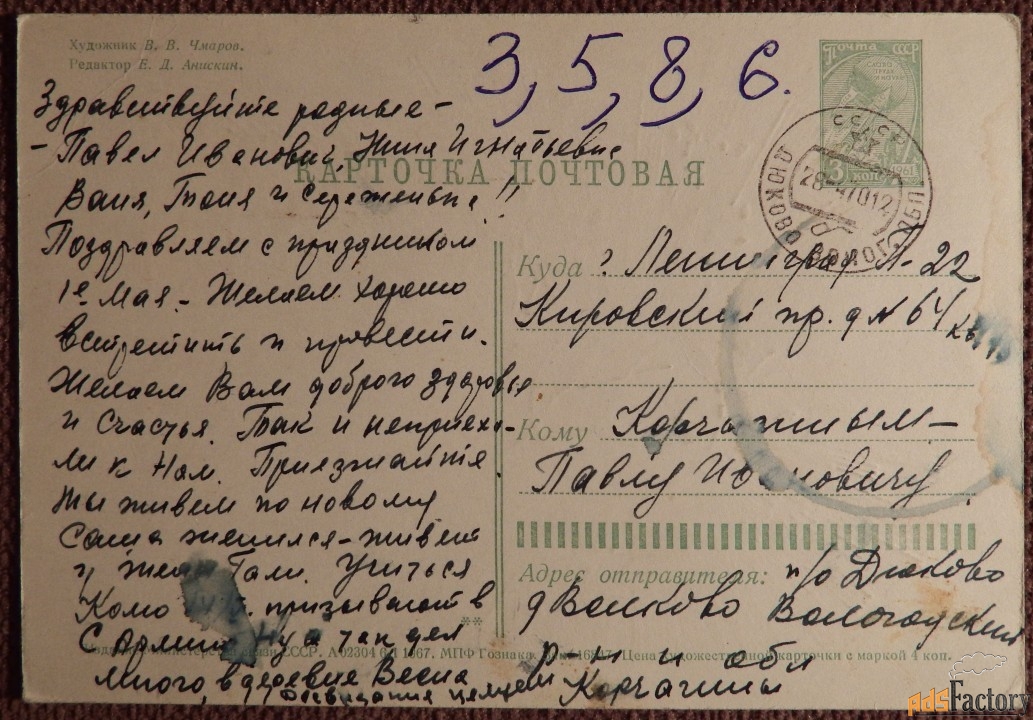 Художник В. В. Чмаров.
Редактор Е. Д. Анискин.
3, 5, 8, 6.
ПОЧТА СССР
3 КОП
1961
СССР
28-4 7012
ДЮКОВО ВОЛОГОД ОБЛ
КАРТОЧКА ПОЧТОВАЯ
Здравствуйте родные -
- Павел Иванович, Нина Игнатьевна
Ваня, Тоня и Сереженька!!
Поздравляем с праздником
1е Мая - Желаем хорошо
встретить и провести.
Желаем Вам доброго здоровья
и Счастья. Так и неприеха-
ли к Нам. Приезжайте.
Мы живем по новому
Саша женился - живет
у жены Гали. Учиться
призывают в
С. Армию Ну а так дел
много в деревне Весна
Досвидания целуем
Куда г. Ленинград Л-22
Кировский пр. д № 64 кв.
Кому Корчагиным -
Павлу Ивановичу
Адрес отправителя: п/о Дюково
д Волково Вологодский
р-н и обл
Корчагины
Издание Министерства связи СССР. А02304 1967. МПФ Гознака. Цена художественной карточки с маркой 4 коп.
AdsFactory